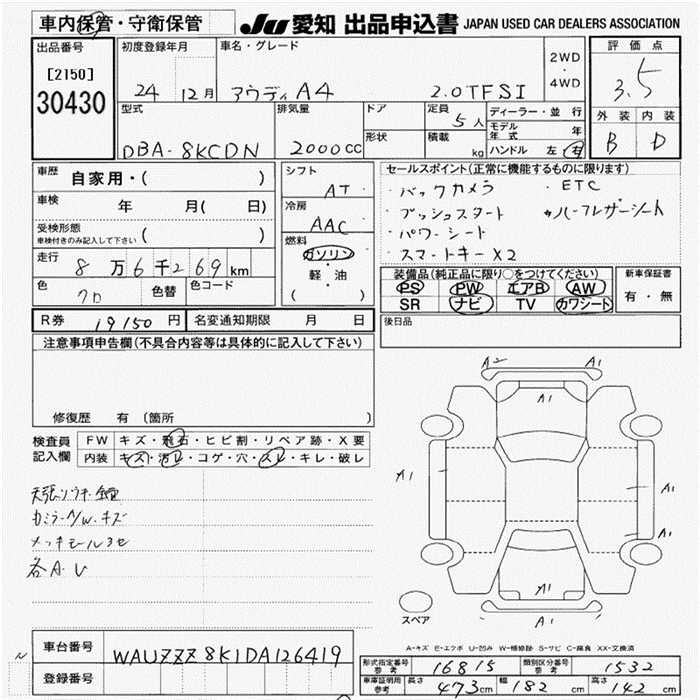 車内保管・守衛保管
JU 愛知 出品申込書 JAPAN USED CAR DEALERS ASSOCIATION
出品番号
[2150]
30430
初度登録年月
24 12月
車名・グレード
アウディA4 2.0TFSI
2WD
・
4WD
評価点
3.5
外装 内装
B D
型式
DBA-8KCDN
排気量
2000cc
ドア
形状
定員
5人
積載
kg
ディーラー・並行
モデル年式 年
ハンドル 左・右
車歴 自家用・( )
車検 年 月( 日)
受検形態
車検付きのみ記入して下さい ( )
走行 8万6千269km
色 クロ 色替 色コード
シフト
AT
冷房
AAC
燃料
ガソリン
・
軽・油
( )
セールスポイント(正常に機能するものに限ります)
・バックカメラ ・ETC
・プッシュスタート ・ハーフレザーシート
・パワーシート
・スマートキー×2
装備品(純正品に限り○をつけてください)
PS PW エアB AW
SR ナビ TV カワシート
新車保証書
有・無
R券 19150円 名変通知期限 月 日
後日品
注意事項申告欄(不具合内容等は具体的に記入して下さい)
修復歴 有 (箇所
検査員
記入欄
FW キズ・飛石・ヒビ割・リペア跡・X要
内装 キズ・汚レ・コゲ・穴・スレ・キレ・破レ
カミラーA/W.キズ
メッキモール3セ
各A.U
A2 A1
A1
A1 A1
A1
A1
スペア
A-キズ E-エクボ U-凹み W-補修跡 S-サビ C-腐食 XX-交換済
N
車台番号 WAUZZZ8K1DA126419
登録番号
形式指定番号
参考 16815
類別区分番号
参考 1532
車庫証明用
参考 長さ 473cm 幅 182cm 高さ 142cm